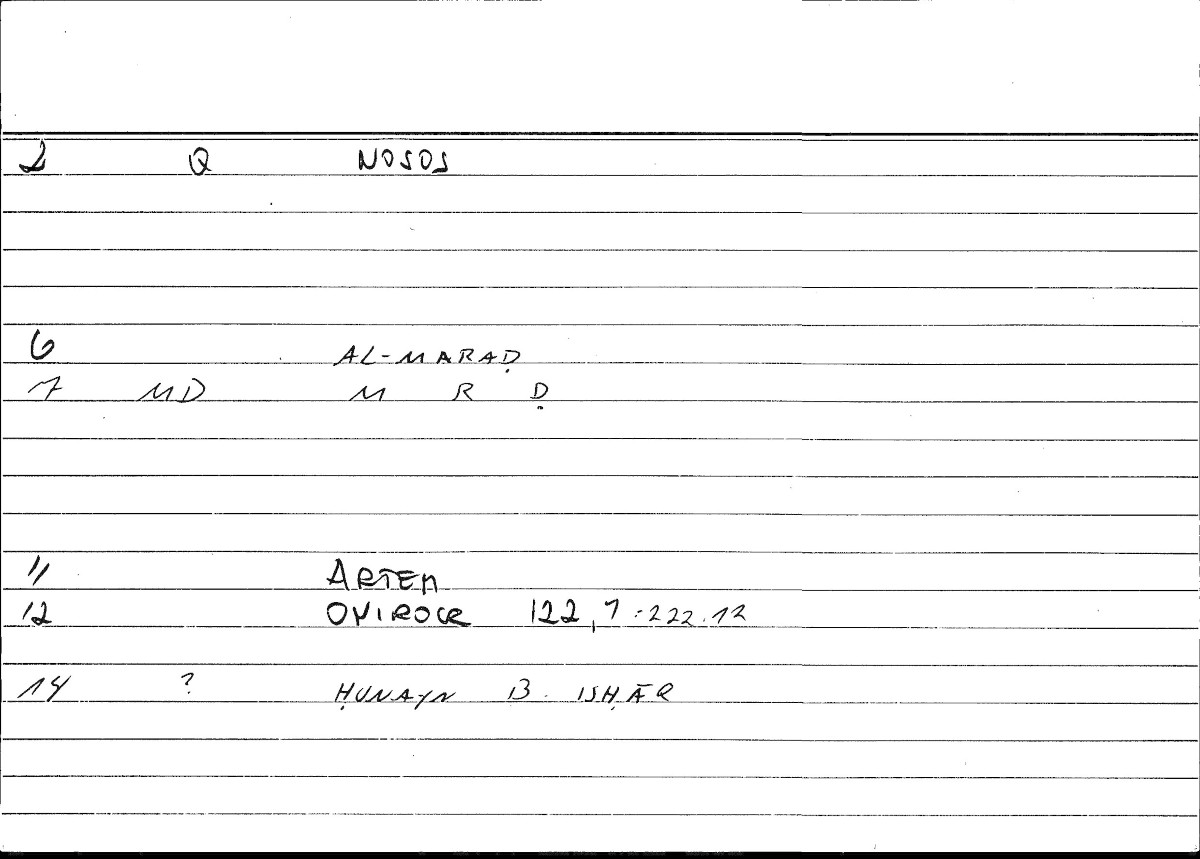 2 Q NOSOS
6 AL-MARAḌ
7 MD M R Ḍ
11 ARTEM
12 ONIROCR 122,7:222.12
14 ? ḤUNAYN B. ISḤĀQ